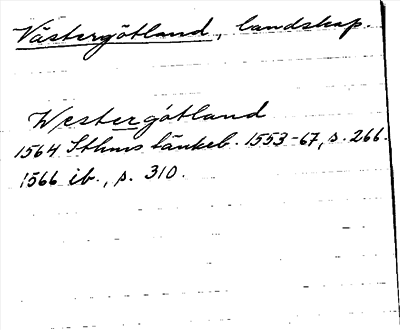 Västergötland, landskap.
Westergötland
1564 Sthms tänkeb. 1553-67, s. 266.
1566 ib., s. 310.